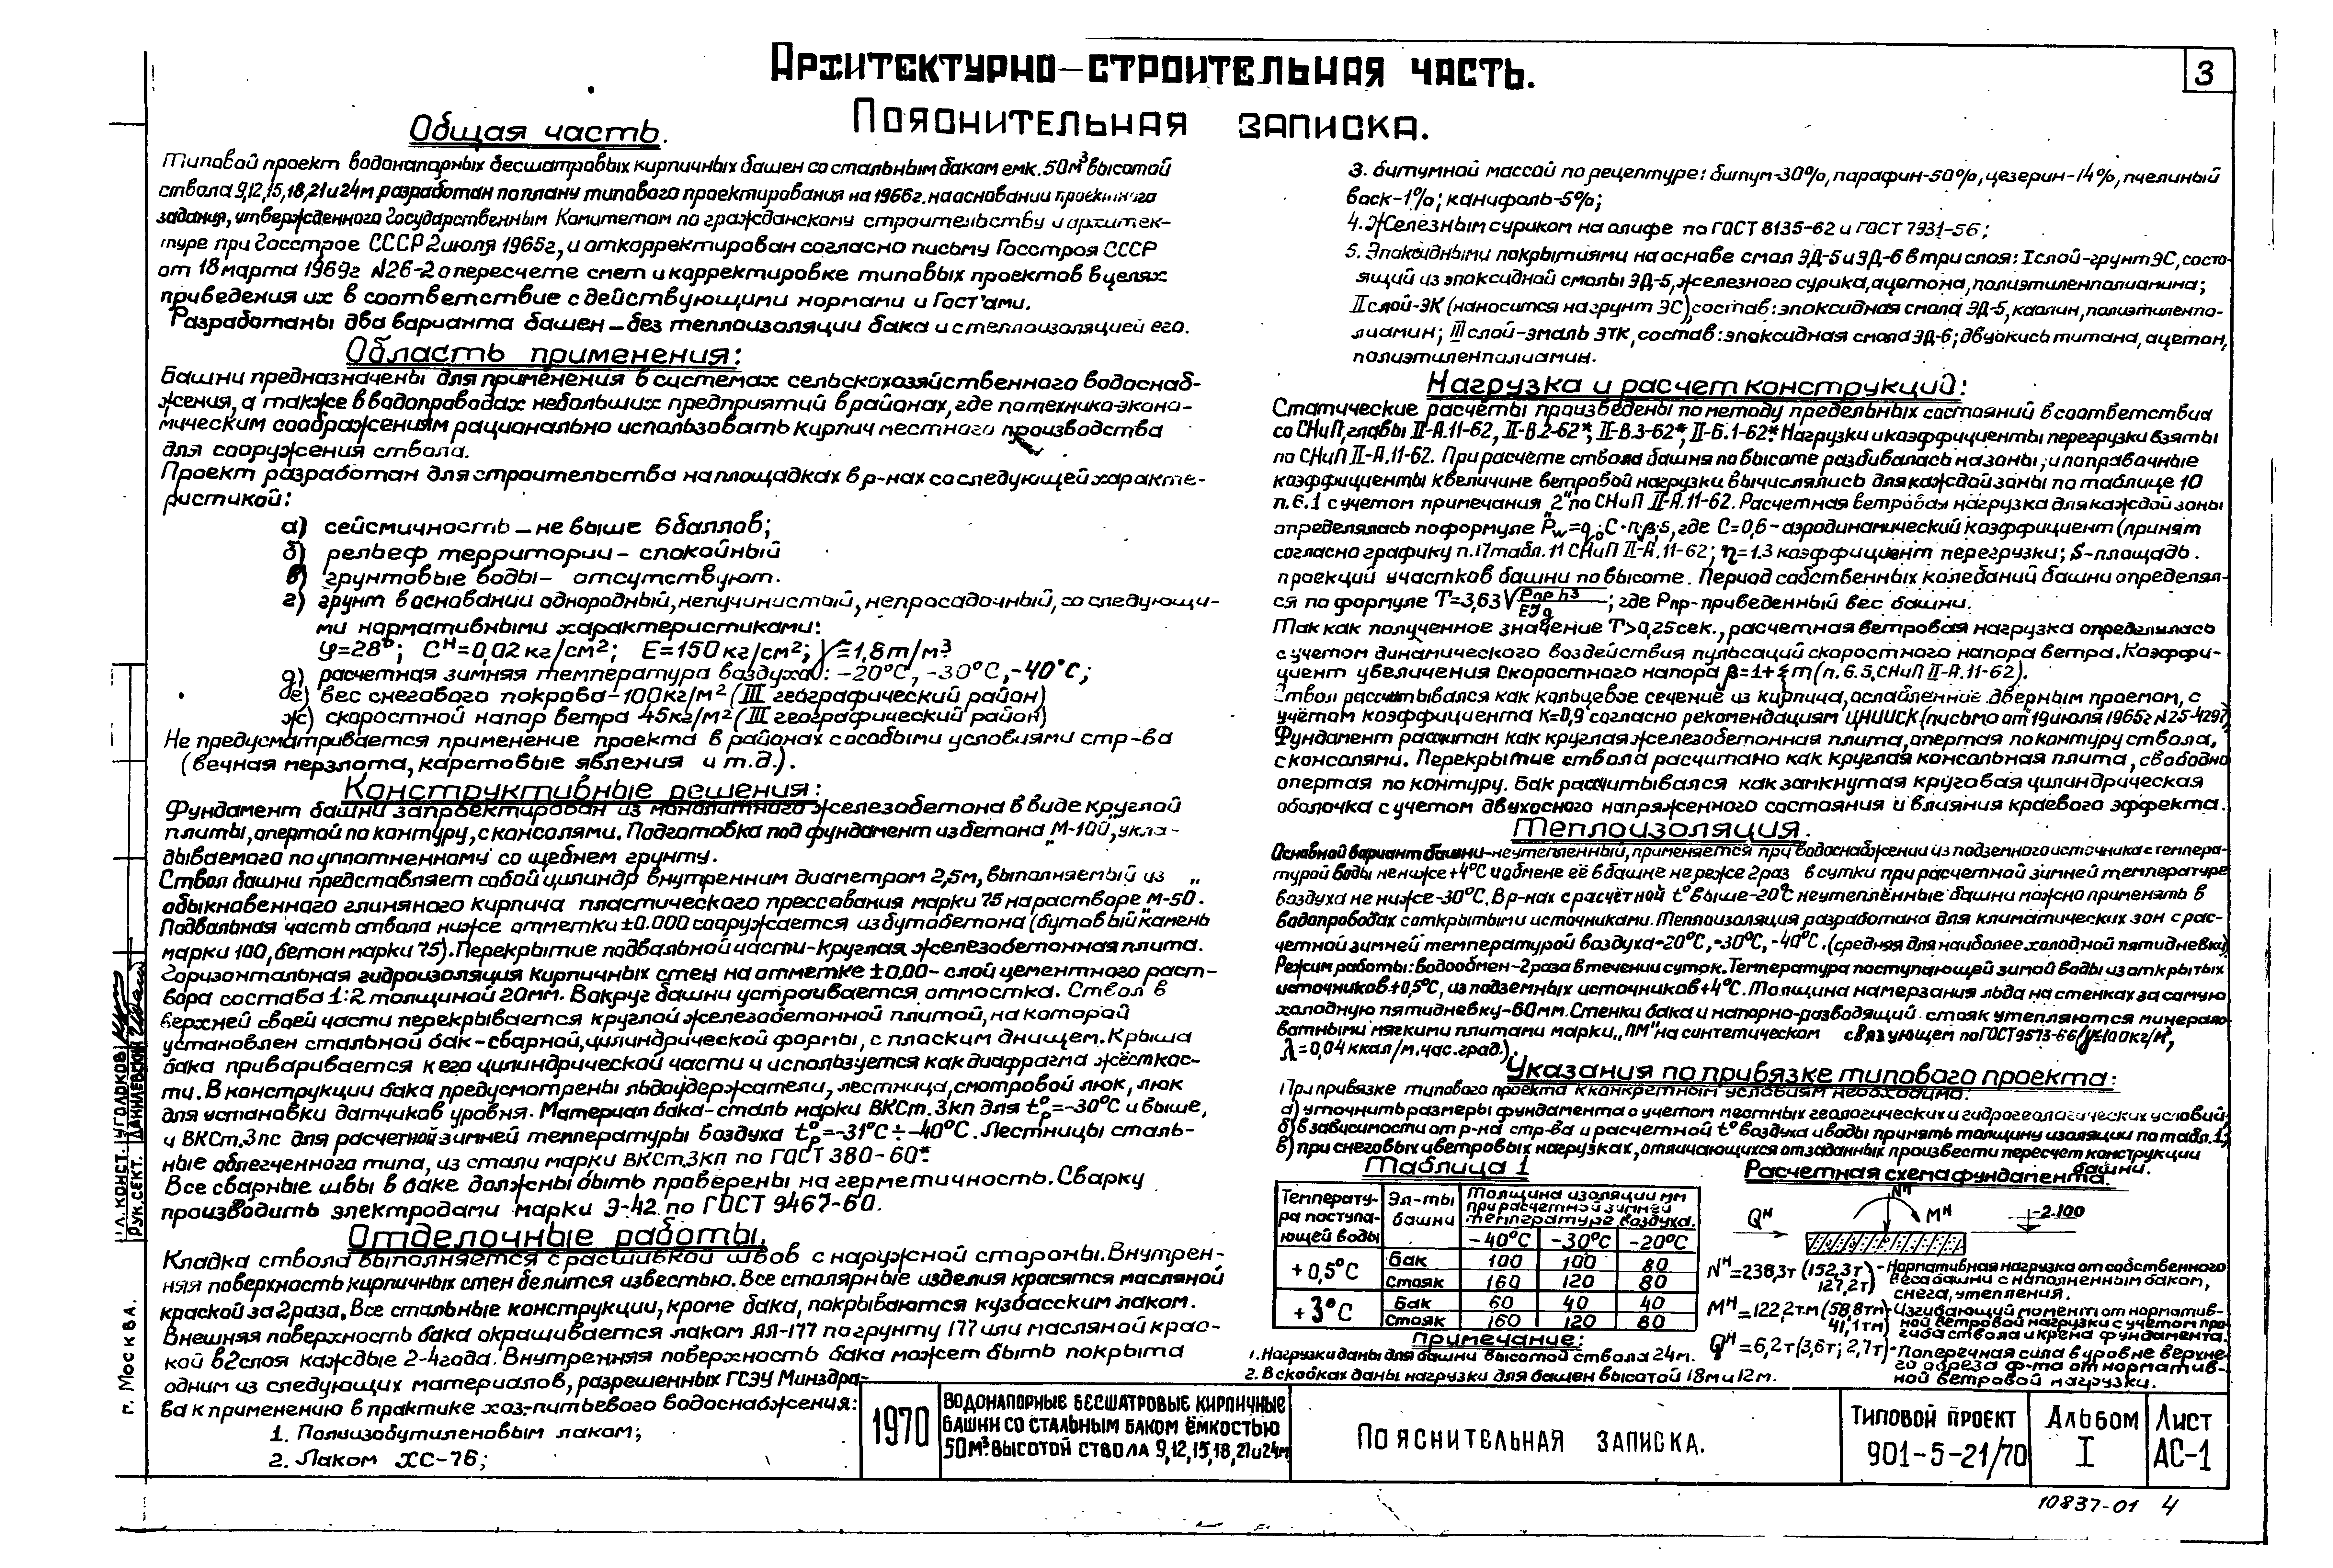 3
Архитектурно-строительная часть.
Пояснительная записка.
Общая часть.
Типовой проект водонапорных бесшатровых кирпичных башен со стальным баком емк. 50м³ высотой
ствола 9,12,15,18,21 и 24м разработан по плану типового проектирования на 1966г. на основании проектного
задания, утвержденного Государственным Комитетом по гражданскому строительству и архитек-
туре при Госстрое СССР 2 июля 1965г, и откорректирован согласно письму Госстроя СССР
от 18 марта 1969г N26-2 о пересчете смет и корректировке типовых проектов в целях
приведения их в соответствие с действующими нормами и Гост'ами.
Разработаны два варианта башен – без теплоизоляции бака и с теплоизоляцией его.
Область применения:
Башни предназначены для применения в системах сельскохозяйственного водоснаб-
жения, а также в водопроводах небольших предприятий в районах, где по технико-эконо-
мическим соображениям рационально использовать кирпич местного производства
для сооружения ствола.
Проект разработан для строительства на площадках в р-нах со следующей характе-
ристикой:
а) сейсмичность – не выше 6 баллов;
б) рельеф территории – спокойный
в) грунтовые воды – отсутствуют.
г) грунт в основании однородный, непучинистый, непросадочный, со следующи-
ми нормативными характеристиками:
φ=28°; Cᴴ=0,02 кг/см²; E=150 кг/см²; γ=1,8т/м³
д) расчетная зимняя температура воздуха: -20°С, -30°С, -40°С;
е) вес снегового покрова – 100кг/м² (III географический район)
ж) скоростной напор ветра 45кг/м² (III географический район)
Не предусматривается применение проекта в районах с особыми условиями стр-ва
(вечная мерзлота, карстовые явления и т.д.).
Конструктивные решения:
Фундамент башни запроектирован из монолитного железобетона в виде круглой
плиты, опертой по контуру, с консолями. Подготовка под фундамент из бетона „М-100", укла-
дываемого по уплотненному со щебнем грунту.
Ствол башни представляет собой цилиндр внутренним диаметром 2,5м, выполняемый из
обыкновенного глиняного кирпича пластического прессования марки 75 на растворе „М-50".
Подвальная часть ствола ниже отметки ±0.000 сооружается из бутобетона (бутовый камень
марки 100, бетон марки 75). Перекрытие подвальной части – круглая железобетонная плита.
Горизонтальная гидроизоляция кирпичных стен на отметке ±0.00 – слой цементного раст-
вора состава 1:2 толщиной 20мм. Вокруг башни устраивается отмостка. Ствол в
верхней своей части перекрывается круглой железобетонной плитой, на которой
установлен стальной бак – сварной, цилиндрической формы, с плоским днищем. Крыша
бака приваривается к его цилиндрической части и используется как диафрагма жёсткос-
ти. В конструкции бака предусмотрены льдоудержатели, лестница, смотровой люк, люк
для установки датчиков уровня. Материал бака – сталь марки ВКСт.3кп для t°р=-30°С и выше,
и ВКСт.3пс для расчетной зимней температуры воздуха t°р=-31°С ÷ -40°С. Лестницы сталь-
ные облегченного типа, из стали марки ВКСт.3кп по ГОСТ 380-60*.
Все сварные швы в баке должны быть проверены на герметичность. Сварку
производить электродами марки Э-42 по ГОСТ 9467-60.
Отделочные работы.
Кладка ствола выполняется с расшивкой швов с наружной стороны. Внутрен-
няя поверхность кирпичных стен белится известью. Все столярные изделия красятся масляной
краской за 2 раза. Все стальные конструкции, кроме бака, покрываются кузбасским лаком.
Внешняя поверхность бака окрашивается лаком АЛ-177 по грунту 177 или масляной крас-
кой в 2 слоя каждые 2-4 года. Внутренняя поверхность бака может быть покрыта
одним из следующих материалов, разрешенных ГСЭУ Минздра-
ва к применению в практике хоз-питьевого водоснабжения:
1. Полиизобутиленовым лаком;
2. Лаком ХС-76;
3. битумной массой по рецептуре: битум-30%, парафин-50%, цезерин-14%, пчелиный
воск-1%; канифоль-5%;
4. Железным суриком на олифе по ГОСТ 8135-62 и ГОСТ 7931-56;
5. Эпоксидными покрытиями на основе смол ЭД-5 и ЭД-6 в три слоя: I слой-грунт ЭС, состо-
ящий из эпоксидной смолы ЭД-5, железного сурика, ацетона, полиэтиленполиамина;
II слой-ЭК (наносится на грунт ЭС), состав: эпоксидная смола ЭД-5, каолин, полиэтиленпо-
лиамин; III слой-эмаль ЭТК, состав: эпоксидная смола ЭД-6; двуокись титана, ацетон,
полиэтиленполиамин.
Нагрузка и расчет конструкций:
Статические расчеты произведены по методу предельных состояний в соответствии
со СНиП, главы II-А.11-62, II-В.2-62*, II-В.3-62*, II-Б.1-62*. Нагрузки и коэффициенты перегрузки взяты
по СНиП II-А.11-62. При расчете ствола башня по высоте разбивалась на зоны, и поправочные
коэффициенты к величине ветровой нагрузки вычислялись для каждой зоны по таблице 10
п.6.1 с учетом примечания „2" по СНиП II-А.11-62. Расчетная ветровая нагрузка для каждой зоны
определялась по формуле Pw=q₀·C·n·β·s, где C=0,6 – аэродинамический коэффициент (принят
согласно графику п.17 табл. 11 СНиП II-А.11-62; n=1.3 коэффициент перегрузки; S-площадь
проекций участков башни по высоте. Период собственных колебаний башни определял-
ся по формуле T=3,63√Pпр h³/EJg; где Pпр-приведенный вес башни.
Так как полученное значение T>0,25сек., расчетная ветровая нагрузка определилась
с учетом динамического воздействия пульсаций скоростного напора ветра. Коэффи-
циент увеличения скоростного напора β=1+ξm (п. 6.5, СНиП II-А.11-62).
Ствол рассчитывался как кольцевое сечение из кирпича, ослабленние дверным проемом, с
учётом коэффициента K=0,9 согласно рекомендациям ЦНИИСК (письмо от 19 июля 1965г N25-4297)
Фундамент рассчитан как круглая железобетонная плита, опертая по контуру ствола,
с консолями. Перекрытие ствола расчитано как круглая консольная плита, свободно
опертая по контуру. Бак рассчитывался как замкнутая круговая цилиндрическая
оболочка с учетом двухосного напряженного состояния и влияния краевого эффекта.
Теплоизоляция.
Основной вариант башни – неутепленный, применяется при водоснабжении из подземного источника с темпера-
турой воды не ниже +4°С и обмене её в башне не реже 2 раз в сутки при расчетной зимней температуре
воздуха не ниже -30°С. В р-нах с расчётной t° выше -20°С неутеплённые башни можно применять в
водопроводах с открытыми источниками. Теплоизоляция разработана для климатических зон с рас-
четной зимней температурой воздуха -20°С, -30°С, -40°С. (средняя для наиболее холодной пятидневки)
Режим работы: водообмен – 2 раза в течении суток. Температура поступающей зимой воды из открытых
источников +0,5°С, из подземных источников +4°С. Толщина намерзания льда на стенках за самую
холодную пятидневку – 60мм. Стенки бака и напорно-разводящий стояк утепляются минерало-
ватными мягкими плитами марки „ПМ" на синтетическом связующем по ГОСТ 9573-66 (γ=100кг/м³,
λ=0,04 ккал/м.час.град.).
Указания по привязке типового проекта:
При привязке типового проекта к конкретным условиям необходимо:
а) уточнить размеры фундамента с учетом местных геологических и гидрогеологических условий;
б) в зависимости от р-на стр-ва и расчетной t° воздуха и воды принять толщину изоляции по табл. 1;
в) при снеговых и ветровых нагрузках, отличающихся от заданных произвести пересчет конструкции
башни.
Таблица 1
Температу-
ра поступа-
ющей воды
Эл-ты
башни
Толщина изоляции мм
при расчетной зимней
температуре воздуха.
-40°С -30°С -20°С
+0,5°С Бак 100 100 80
Стояк 160 120 80
+3°С Бак 60 40 40
Стояк 160 120 80
Примечание:
1. Нагрузки даны для башни высотой ствола 24м.
2. В скобках даны нагрузки для башен высотой 18м и 12м.
Расчетная схема фундамента.
Nᴴ
Qᴴ Mᴴ -2.100
Nᴴ=238,3т (152,3т; 127,2т) – Нормативная нагрузка от собственного
веса башни с наполненным баком,
снега, утепления.
Mᴴ=122,2тм (58,8тм; 41,1тм) – Изгибающий момент от норматив-
ной ветровой нагрузки с учетом про-
гиба ствола и крена фундамента.
Qᴴ=6,2т (3,6т; 2,7т) – Поперечная сила в уровне верхне-
го обреза ф-та от норматив-
ной ветровой нагрузки.
1970
Водонапорные бесшатровые кирпичные
башни со стальным баком ёмкостью
50м³ высотой ствола 9,12,15,18,21 и 24м
Пояснительная записка.
Типовой проект
901-5-21/70
Альбом
I
Лист
АС-1
10837-01 4
Гл. конст. Уголдков
Рук. сект. Данилевский
г. Москва.